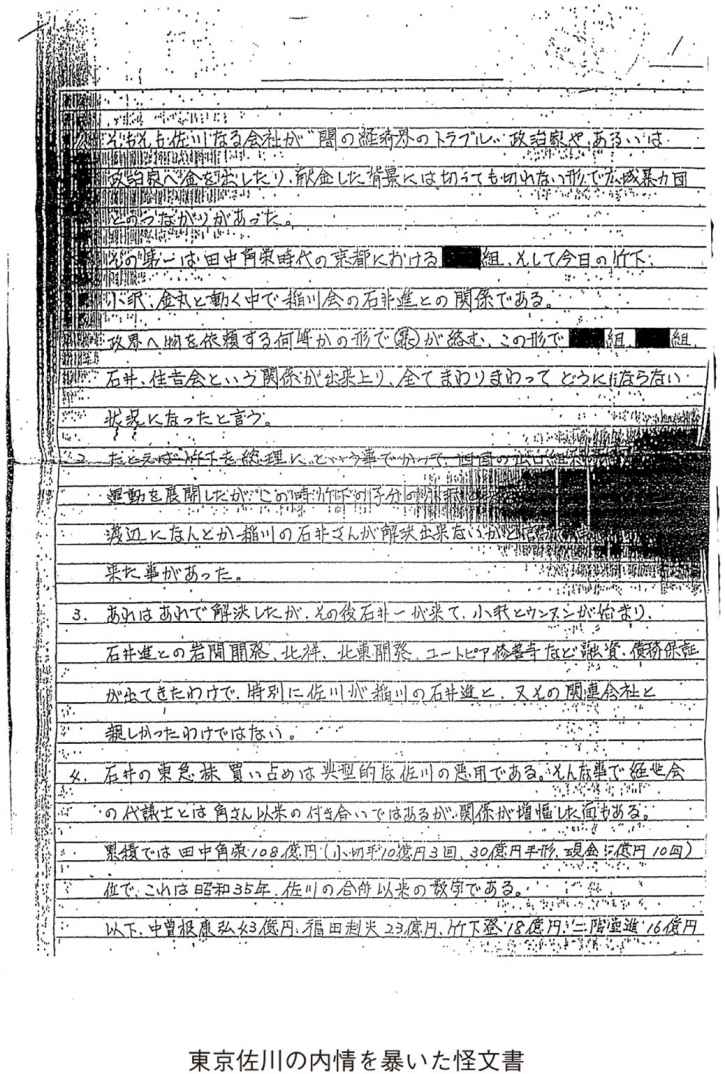 1
そもそも佐川なる会社が"闇の経済界のトラブル、政治家や、あるいは
政治家へ金を出したり、献金した背景には切っても切れない形で広域暴力団
とのつながりがあった。
その第一は田中角栄時代の京都における 組、そして今日の竹下、
小沢、金丸と動く中で稲川会の石井進との関係である。
政界へ物を依頼する何等かの形で(暴)が絡む、この形で 組、 組、
石井、住吉会という関係が出来上り、全てまわりまわってどうにもならない
状況になったと言う。
2. たとえば竹下を総理に、という事でかつて、四国の
運動を展開したが、この時竹下の子分の
渡辺になんとか稲川の石井さんが解決出来ないかと
来た事があった。
3. あれはあれで解決したが、その後石井一が来て、小沢とウンヌンが始まり、
石井進との岩間開発、北祥、北東開発、ユートピア修善寺など融資、債務保証
が出てきたわけで、特別に佐川が稲川の石井進と、又その関連会社と
親しかったわけではない。
4. 石井の東急株買い占めは典型的な佐川の悪用である。そんな事で経世会
の代議士とは角さん以来の付き合いではあるが、関係が増幅した面もある。
累積では田中角栄108億円(小切手10億円3回、30億円手形、現金 億円10回)
位で、これは昭和35年、佐川の合併以来の数字である。
以下、中曽根康弘43億円、福田赳夫23億円、竹下登18億円、二階堂進16億円
東京佐川の内情を暴いた怪文書